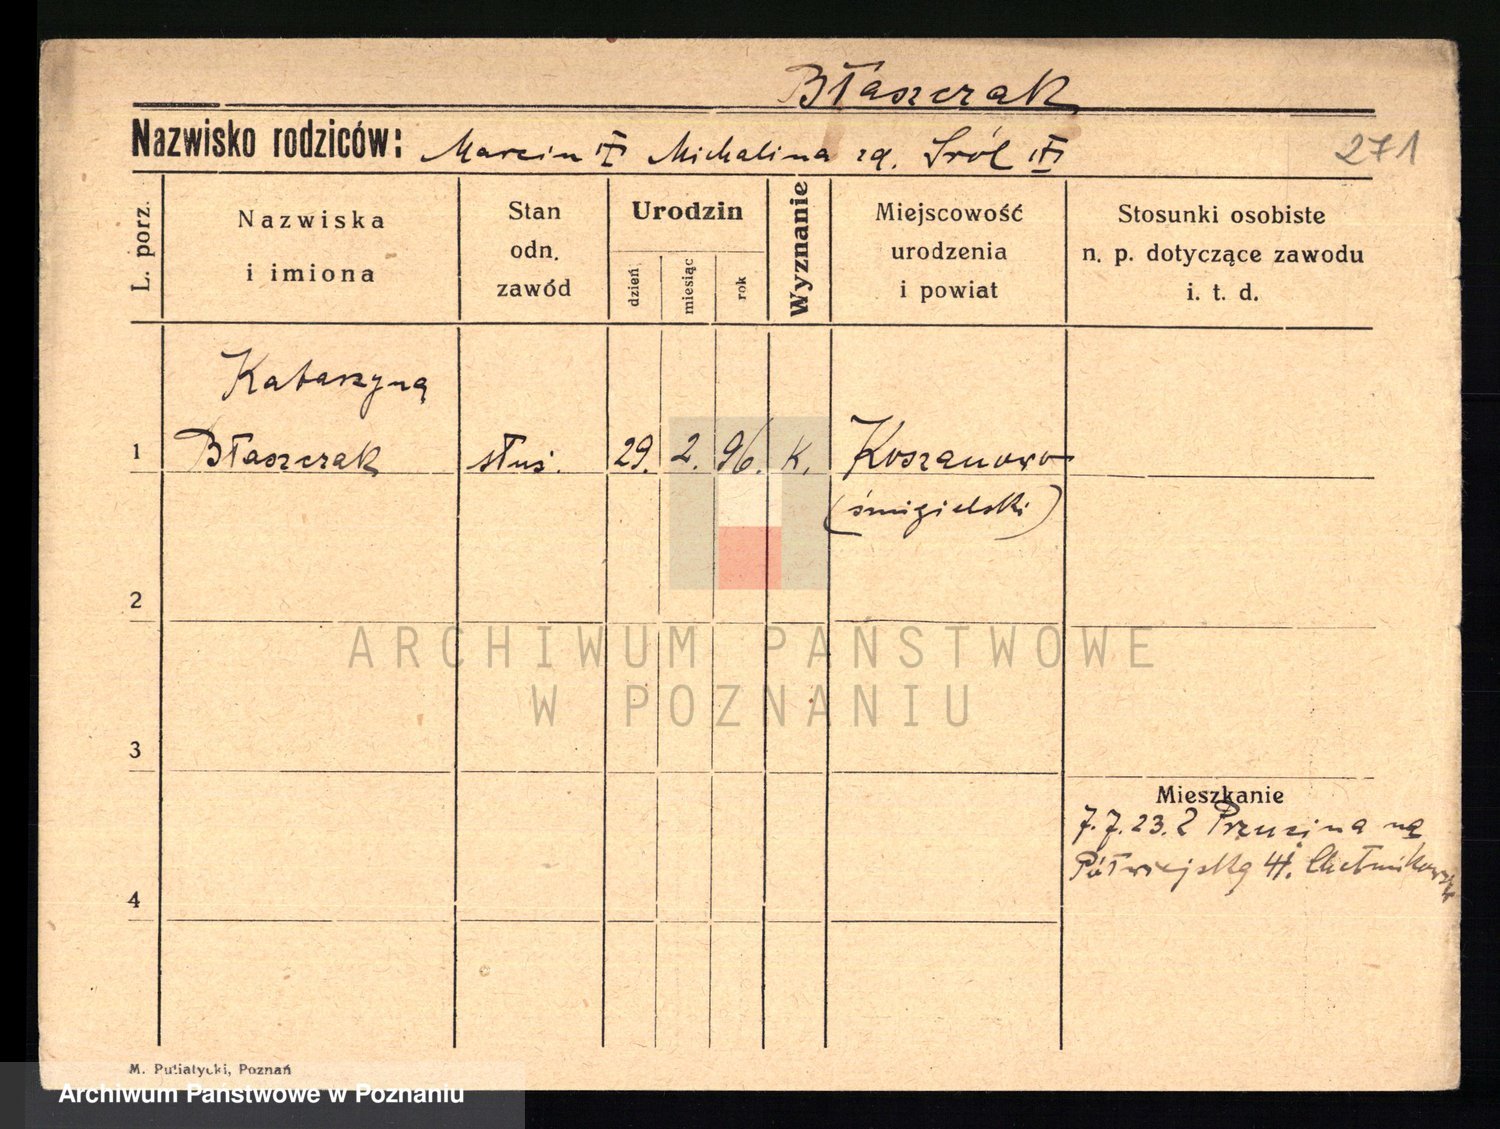 Błaszczak
Nazwisko rodziców: Marcin Michalina
271
L. porz.
Nazwiska
i imiona
Stan
odn.
zawód
Urodzin
dzień
miesiąc
rok
Wyznanie
Miejscowość
urodzenia
i powiat
Stosunki osobiste
n. p. dotyczące zawodu
i. t. d.
Katarzyna
1 Błaszczak służ. 29. 2. 96. K. Koszanowo
(śmigielski)
2
ARCHIWUM PAŃSTWOWE
W POZNANIU
3
Mieszkanie
7.7.23. na
4
Półwiejską
M. Putiatycki, Poznań
Archiwum Państwowe w Poznaniu